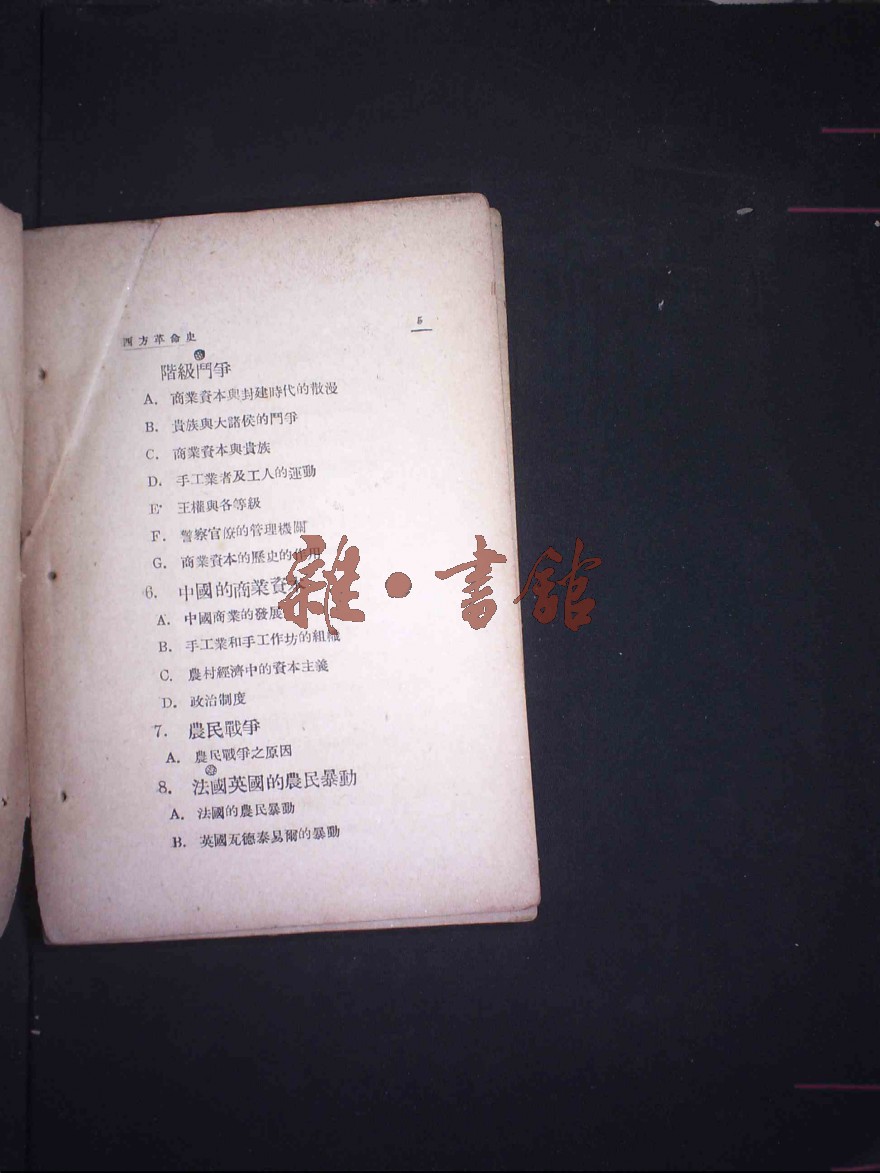 西方革命史
5
階級鬥爭
A. 商業資本與封建時代的散漫
B. 貴族與大諸侯的鬥爭
C. 商業資本與貴族
D. 手工業者及工人的運動
E· 王權與各等級
F. 警察官僚的管理機關
G. 商業資本的歷史的作用
6. 中國的商業資本
A. 中國商業的發展
B. 手工業和手工作坊的組織
C. 農村經濟中的資本主義
D. 政治制度
7. 農民戰爭
A. 農民戰爭之原因
8. 法國英國的農民暴動
A. 法國的農民暴動
B. 英國瓦德泰易爾的暴動
雜·書館